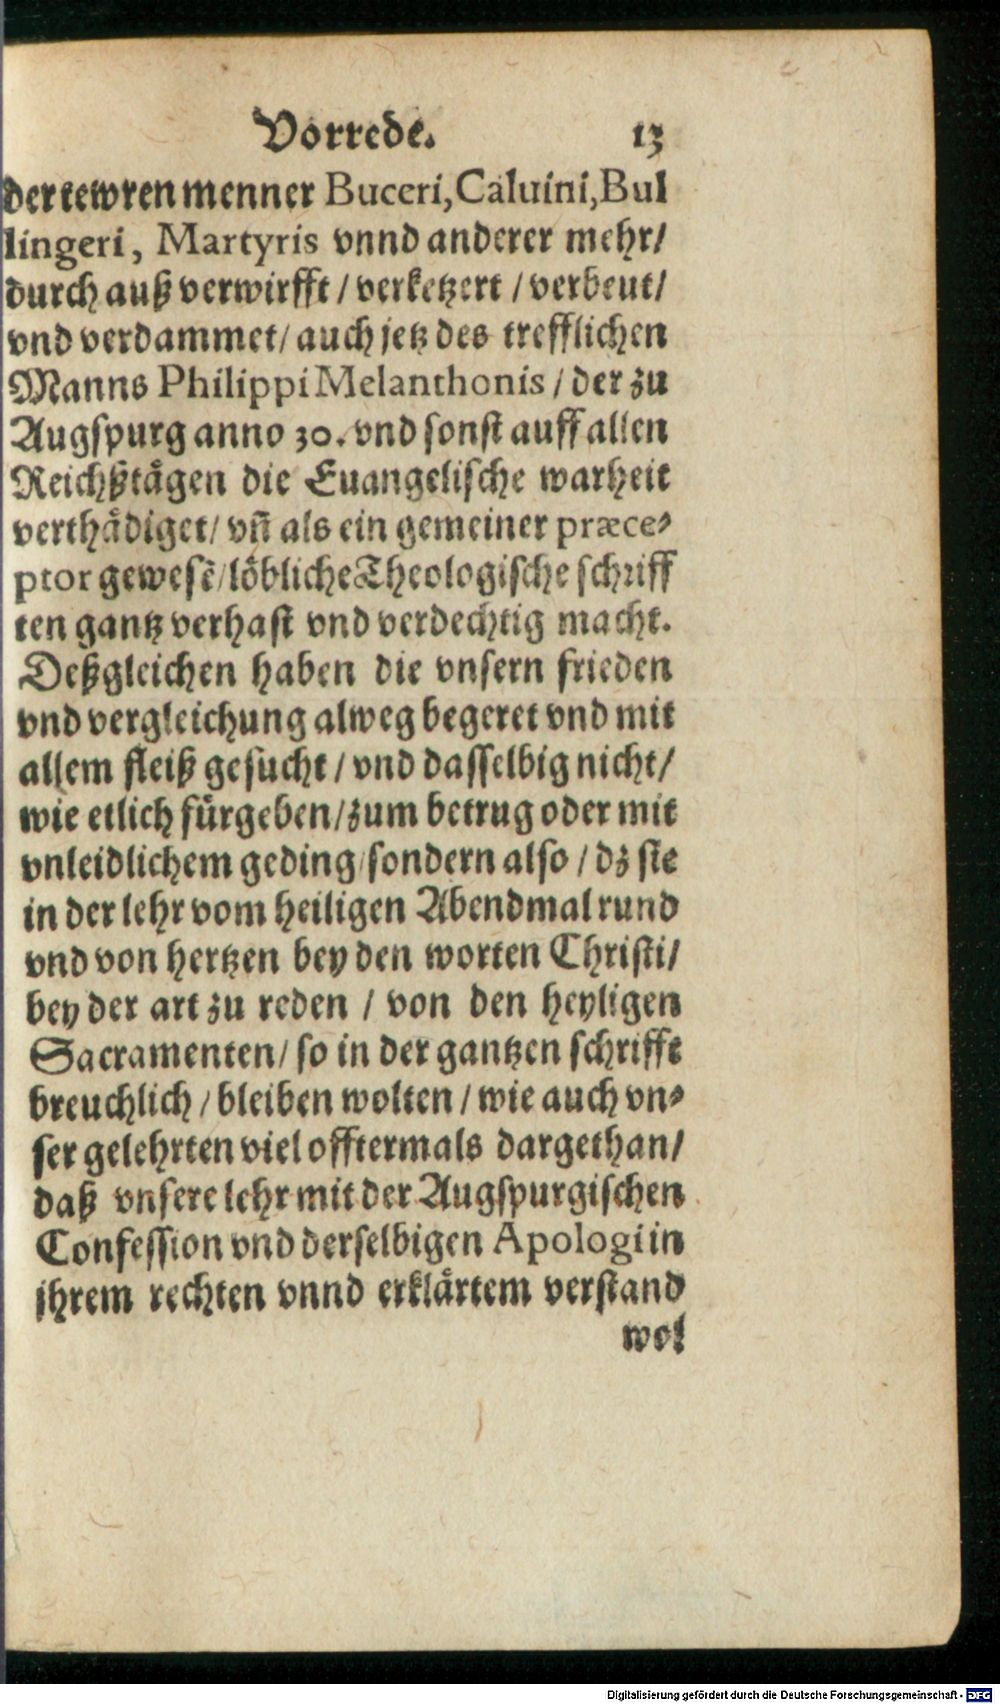 Vorrede. 13
der tewren menner Buceri, Caluini, Bul
lingeri, Martyris vnnd anderer mehr/
durch auß verwirfft / verketzert / verbeut/
vnd verdammet/ auch jetz des trefflichen
Manns Philippi Melanthonis / der zu
Augspurg anno 30. vnd sonst auff allen
Reichßtägen die Euangelische warheit
verthädiget/ vñ als ein gemeiner præce⸗
ptor gewesẽ/ löbliche Theologische schriff
ten gantz verhast vnd verdechtig macht.
Deßgleichen haben die vnsern frieden
vnd vergleichung alweg begeret vnd mit
allem fleiß gesucht / vnd dasselbig nicht/
wie etlich fürgeben/ zum betrug oder mit
vnleidlichem geding/ sondern also / dz sie
in der lehr vom heiligen Abendmal rund
vnd von hertzen bey den worten Christi/
bey der art zu reden / von den heyligen
Sacramenten/ so in der gantzen schrifft
breuchlich / bleiben wolten / wie auch vn⸗
ser gelehrten viel offtermals dargethan/
daß vnsere lehr mit der Augspurgischen
Confession vnd derselbigen Apologi in
jhrem rechten vnnd erklärtem verstand
wol
Digitalisierung gefördert durch die Deutsche Forschungsgemeinschaft - DFG